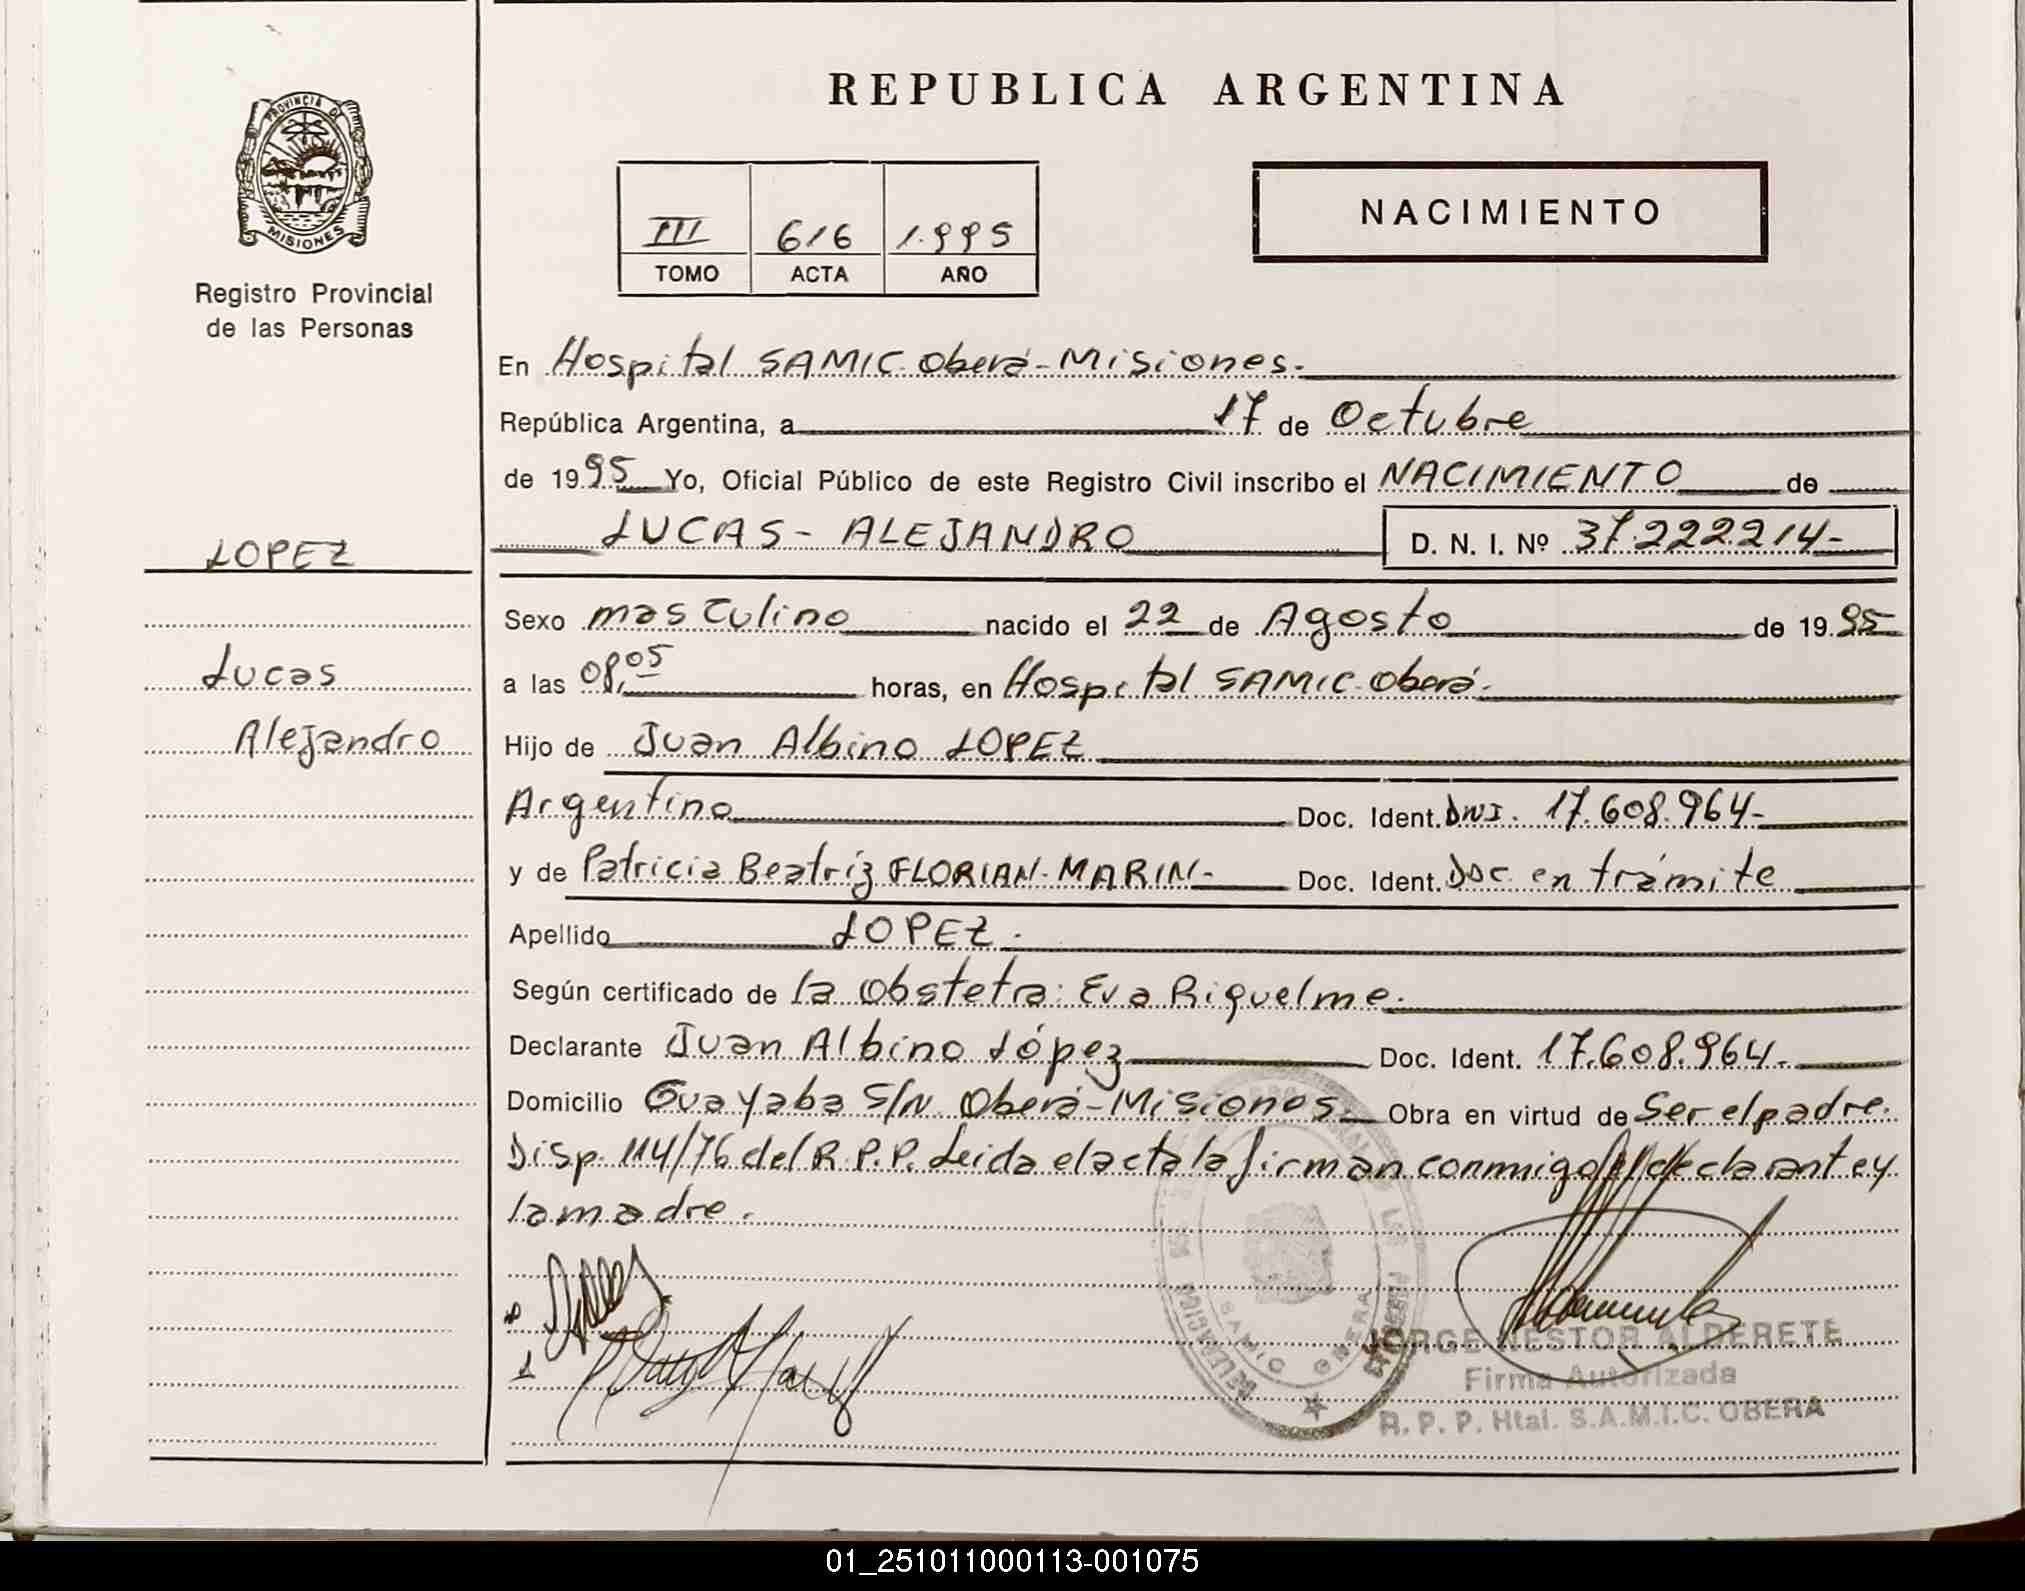 REPUBLICA ARGENTINA
PROVINCIA DE
MISIONES
Registro Provincial
de las Personas
III 616 1.995
TOMO ACTA AÑO
NACIMIENTO
LOPEZ
Lucas
Alejandro
En Hospital SAMIC. Oberá-Misiones.
República Argentina, a 17 de Octubre
de 1995 Yo, Oficial Público de este Registro Civil inscribo el NACIMIENTO de
LUCAS - ALEJANDRO D. N. I. Nº 37.222.214-
Sexo masculino nacido el 22 de Agosto de 1995
a las 08,05 horas, en Hospital SAMIC. Oberá.
Hijo de Juan Albino LOPEZ
Argentino Doc. Ident. DNI. 17.608.964-
y de Patricia Beatríz FLORIAN-MARIN- Doc. Ident. Doc en trámite
Apellido LOPEZ.
Según certificado de la Obstetra: Eva Riquelme.
Declarante Juan Albino López Doc. Ident. 17.608.964.
Domicilio Guayaba S/N. Oberá-Misiones. Obra en virtud de Ser el padre.
Disp. 114/76 del R.P.P. Leida el acta la firman conmigo el declarante y
la madre.
JORGE NESTOR ALDERETE
Firma Autorizada
R. P. P. Htal. S.A.M.I.C. OBERA
01_251011000113-001075